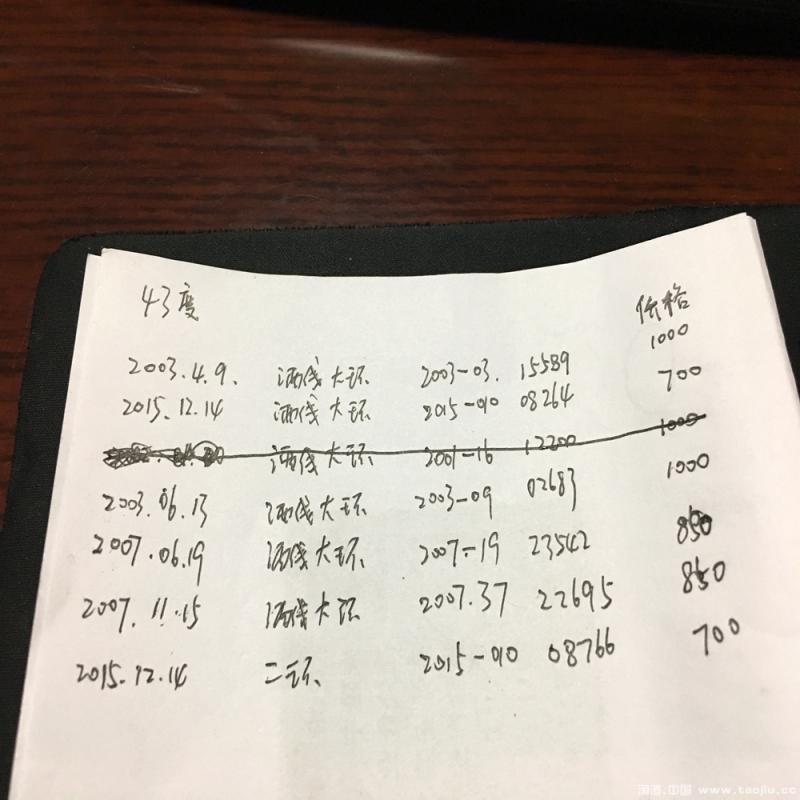 43度 价格
2003.4.9. 酒线大环 2003-03. 15589 1000
2015.12.14 酒线大环 2015-010 08264 700
酒线大环 2001-16 12200 1000
2003.06.13 酒线大环 2003-09 02683 1000
2007.06.19 酒线大环 2007-19 23542 850
2007.11.15 酒线大环 2007.37 22695 850
2015.12.14 二环 2015-010 08766 700
淘酒.中国 www.taojiu.cc